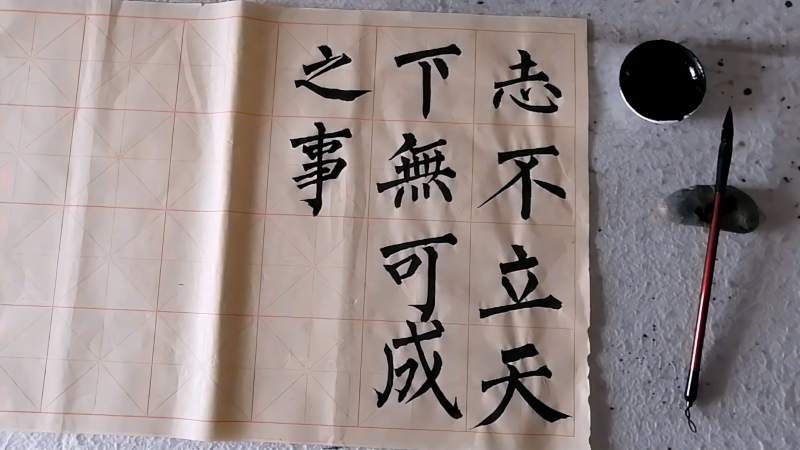 志不立天
下無可成
之事